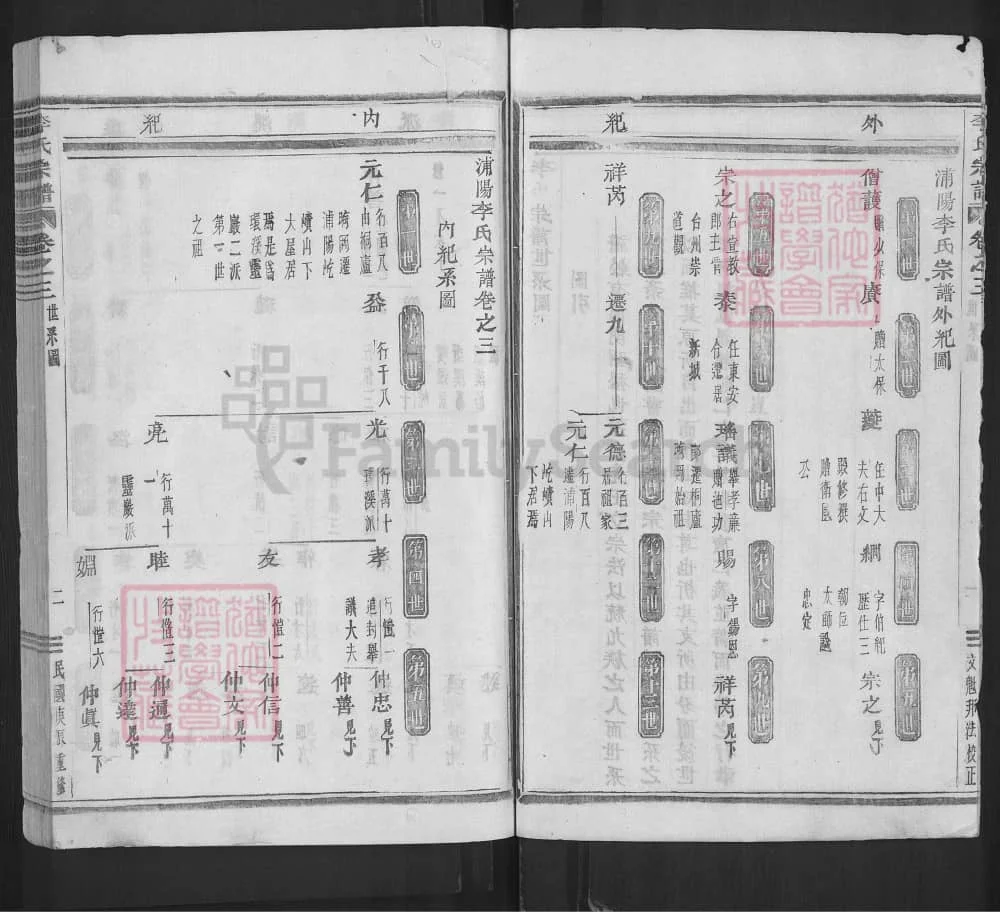 外紀
浦陽李氏宗譜外紀圖
第一世
第二世
第三世
第四世
第五世
僧護 贈少保
廣 贈太保
夔 任中大夫右文殿修撰贈衛國公
綱 字伯紀歷任三朝位太師諡忠定
宗之 見下
第五世
第六世
第七世
第八世
第九世
宗之 右宣教郎主管台州崇道觀
泰 任東安令遷居新城
璿 議舉孝廉贈迪功郎遷桐廬始祖
賜 字錫恩
祥芮 見下
第九世
第十世
第十一世
第十二世
第十三世
祥芮
遷九
元德 行百三居祖家
元仁 行百八遷浦陽屹嶺山下居焉
內紀
浦陽李氏宗譜卷之三
內紀系圖
第一世
第二世
第三世
第四世
第五世
元仁 行百八由桐廬
兩遷浦陽屹嶺山下大屋居焉是爲環溪靈巖二派第一世之祖
行千八
光 行萬十
環溪派
亮 行萬十一
靈巖派
孝 行愷一
誥封奉議大夫
友 行愷二
睦 行愷三
婣 行愷六
仲忠 見下
仲善 見下
仲信 見下
仲文 見下
仲通 見下
仲達 見下
仲眞 見下
李氏宗譜 卷之三 世系圖
二
民國庚辰重修
李氏宗譜 卷之三 世系圖
一
文魁邦法校正
FamilySearch